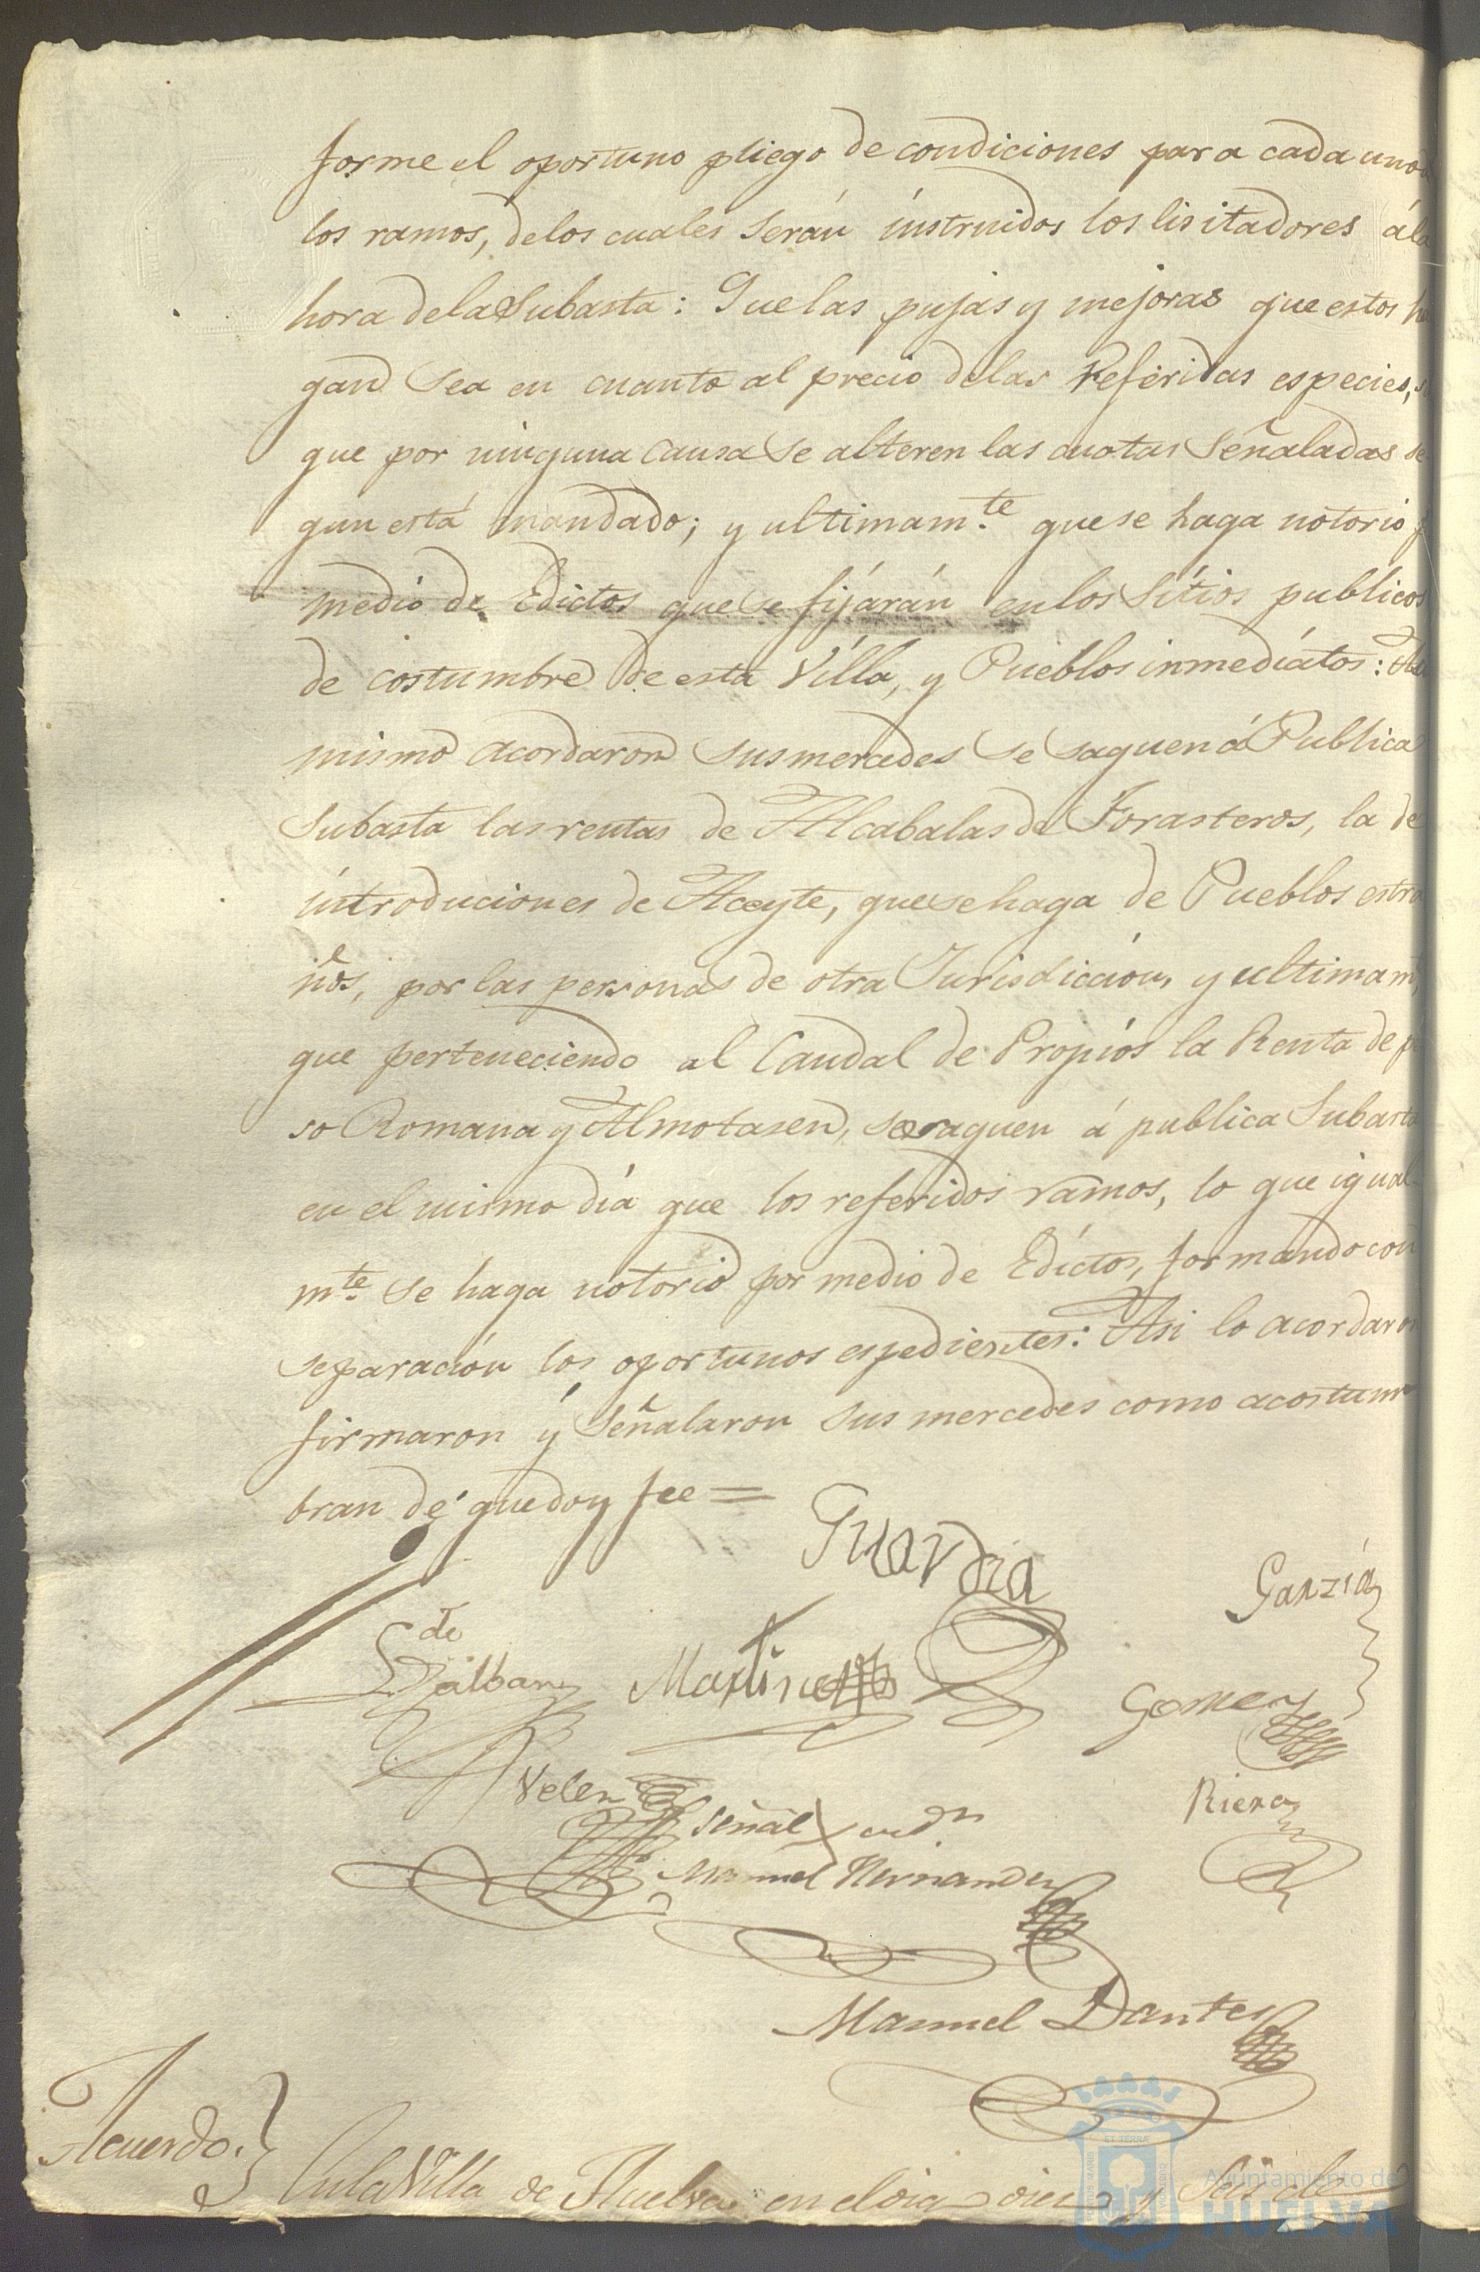 forme el oportuno pliego de condiciones para cada uno de
los ramos, delos cuales serán instruidos los lisitadores ála
hora dela Subasta: Que las pujas y mejoras que estos ha
gan sea en cuanto al precio delas referidas especies, s
que por ninguna causa se alteren las cuotas señaladas se
gun está mandado; y ultimam.te que se haga notorio p
medio de Edictos que se fijárán en los Sitios publicos
de costumbre de esta Villa, y Pueblos inmediátos: Asi
mismo acordaron sus mercedes se saquen á Publica
Subasta las rentas de Alcabalas de Forasteros, la de
introduciones de Aceyte, que se haga de Pueblos estra
ños, por las personas de otra Jurisdicción, y ultimam
que perteneciendo al Caudal de Propios la Renta de pe
so Romana y Almotasen, se saquen á publica Subasta
en el mismo día que los referidos ramos, lo que igual-
mte. se haga notorio por medio de Edictos, formando con
separación los oportunos espedientes: Asi lo acordaron
firmaron y señalaron sus mercedes como acostum
bran dé que doy fee =
Guardia
Garzia
de
Martinez
Gomez
Velez
Riera
Señal x en dn
Manuel Hernandez
Manuel Dantes
Acuerdo.
En la Villa de Huelva en el dia diez y seis de
Ayuntamiento de
HUELVA